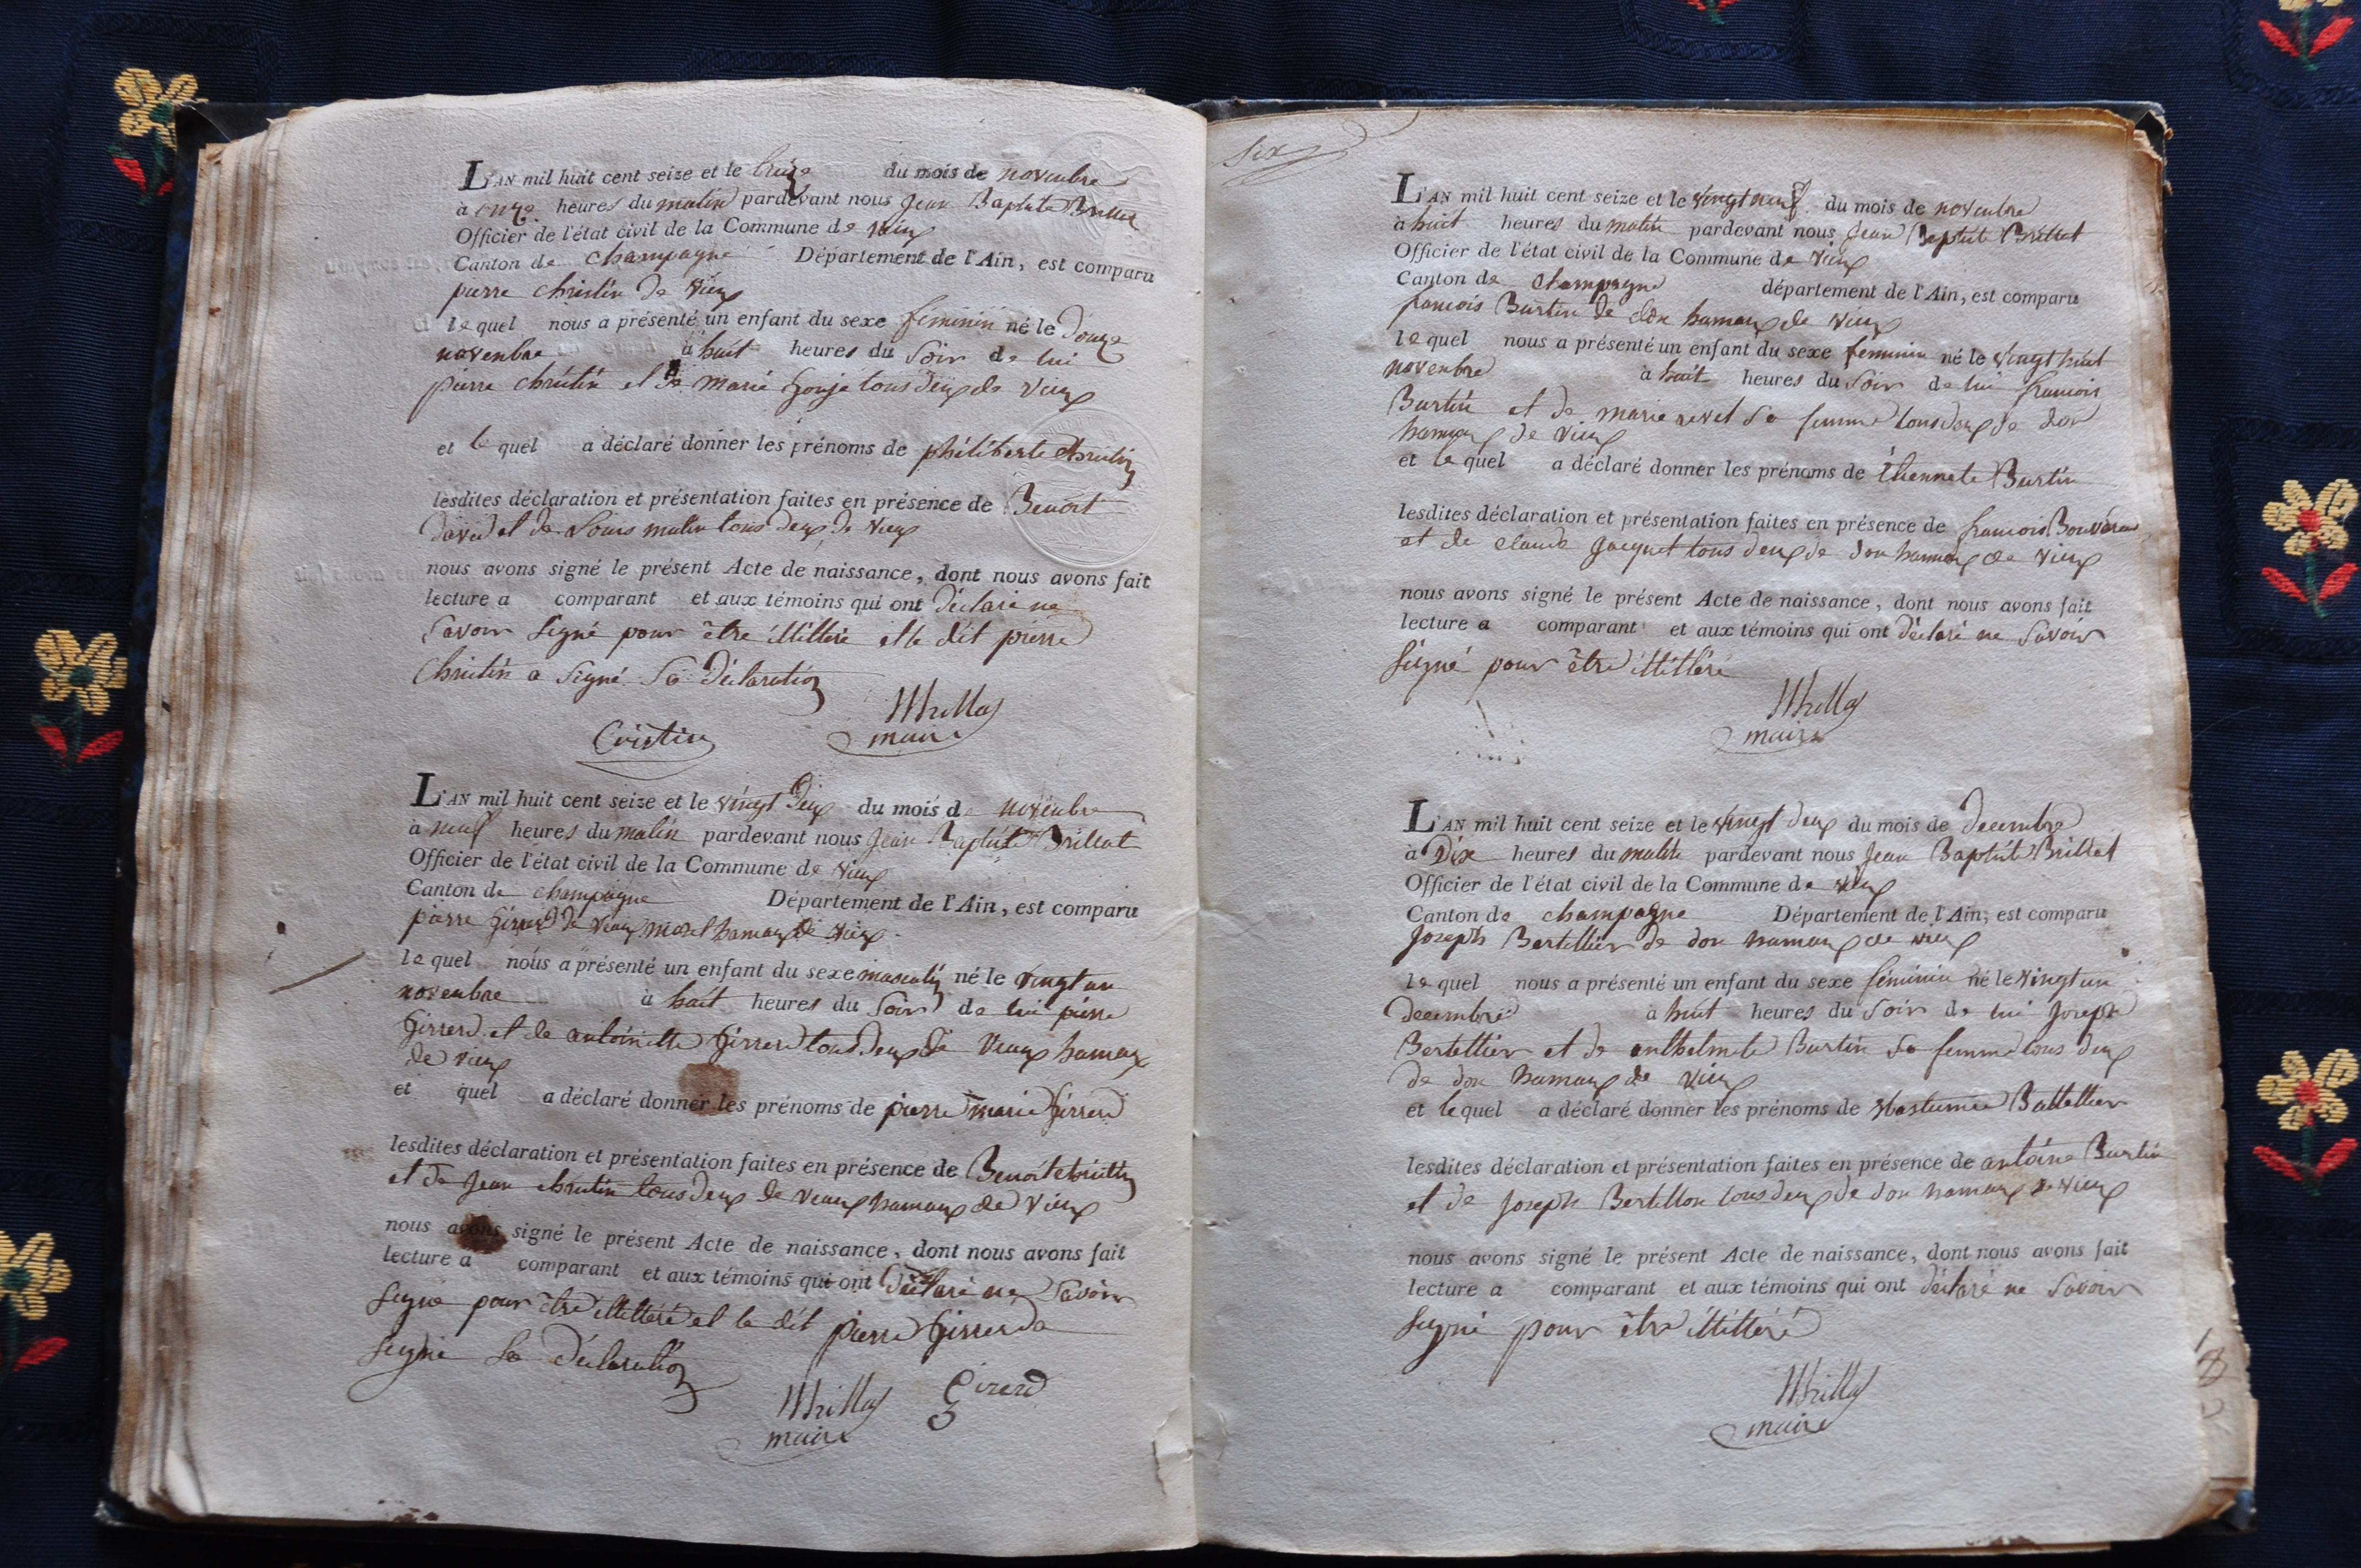 L'AN mil huit cent seize et le treize du mois de novembre
à onze heures du matin pardevant nous Jean Baptiste Brillat
Officier de l'état civil de la Commune de vieux
Canton de champagne Département de l'Ain, est comparu
pierre christin de vieux
lequel nous a présenté un enfant du sexe féminin né le Douze
novembre à huit heures du Soir de lui
pierre christin et de marie Gonje tous deux de vieux
et le quel a déclaré donner les prénoms de philiberte christin
lesdites déclaration et présentation faites en présence de Benoit
david et de Louis matin tous deux de vieux
nous avons signé le présent Acte de naissance, dont nous avons fait
lecture a comparant et aux témoins qui ont déclaré ne
Savoir Signé pour être illitéré et le dit pierre
Christin a Signé Sa déclaration
Cristin
maire
L'AN mil huit cent seize et le vingt deux du mois de novembre
à neuf heures du matin pardevant nous Jean Baptiste Brillat
Officier de l'état civil de la Commune de vieux
Canton de champagne Département de l'Ain, est comparu
pierre Girrerd de hamaux de vieux
lequel nous a présenté un enfant du sexe masculin né le vingt un
novembre à huit heures du Soir de lui pierre
Girrerd et de antoinette Girrerd tous deux de hamaux
de vieux
et quel a déclaré donner les prénoms de pierre marie Girrerd
lesdites déclaration et présentation faites en présence de Benoit christin
et de Jean christin tous deux de hamaux de vieux
nous avons signé le présent Acte de naissance, dont nous avons fait
lecture a comparant et aux témoins qui ont déclaré ne Savoir
Signé pour être illitéré et le dit pierre Girrerd a
Signé Sa déclaration
Girerd
maire
six
L'AN mil huit cent seize et le vingt neuf du mois de novembre
à huit heures du matin pardevant nous Jean Baptiste Brillat
Officier de l'état civil de la Commune de vieux
Canton de champagne département de l'Ain, est comparu
francois Burtin de don hamaux de vieux
lequel nous a présenté un enfant du sexe feminin né le vingt huit
novembre à huit heures du Soir de lui francois
Burtin et de marie revet Sa femme tous deux de don
hamaux de vieux
et le quel a déclaré donner les prénoms de Etiennete Burtin
lesdites déclaration et présentation faites en présence de francois
et de claude Jacquet tous deux de don hamaux de vieux
nous avons signé le présent Acte de naissance, dont nous avons fait
lecture a comparant et aux témoins qui ont déclaré ne Savoir
Signé pour être illitéré
maire
L'AN mil huit cent seize et le vingt deux du mois de decembre
à Dix heures du matin pardevant nous Jean Baptiste Brillat
Officier de l'état civil de la Commune de vieux
Canton de champagne Département de l'Ain, est comparu
Joseph Bertellier de don hamaux de vieux
lequel nous a présenté un enfant du sexe féminin né le vingt un
decembre à huit heures du Soir de lui Joseph
Bertellier et de anthelmete Burtin Sa femme tous deux
de don hamaux de vieux
et le quel a déclaré donner les prénoms de
lesdites déclaration et présentation faites en présence de antoine Burtin
et de Joseph tous deux de don hamaux de vieux
nous avons signé le présent Acte de naissance, dont nous avons fait
lecture a comparant et aux témoins qui ont déclaré ne Savoir
Signé pour être illitéré
maire